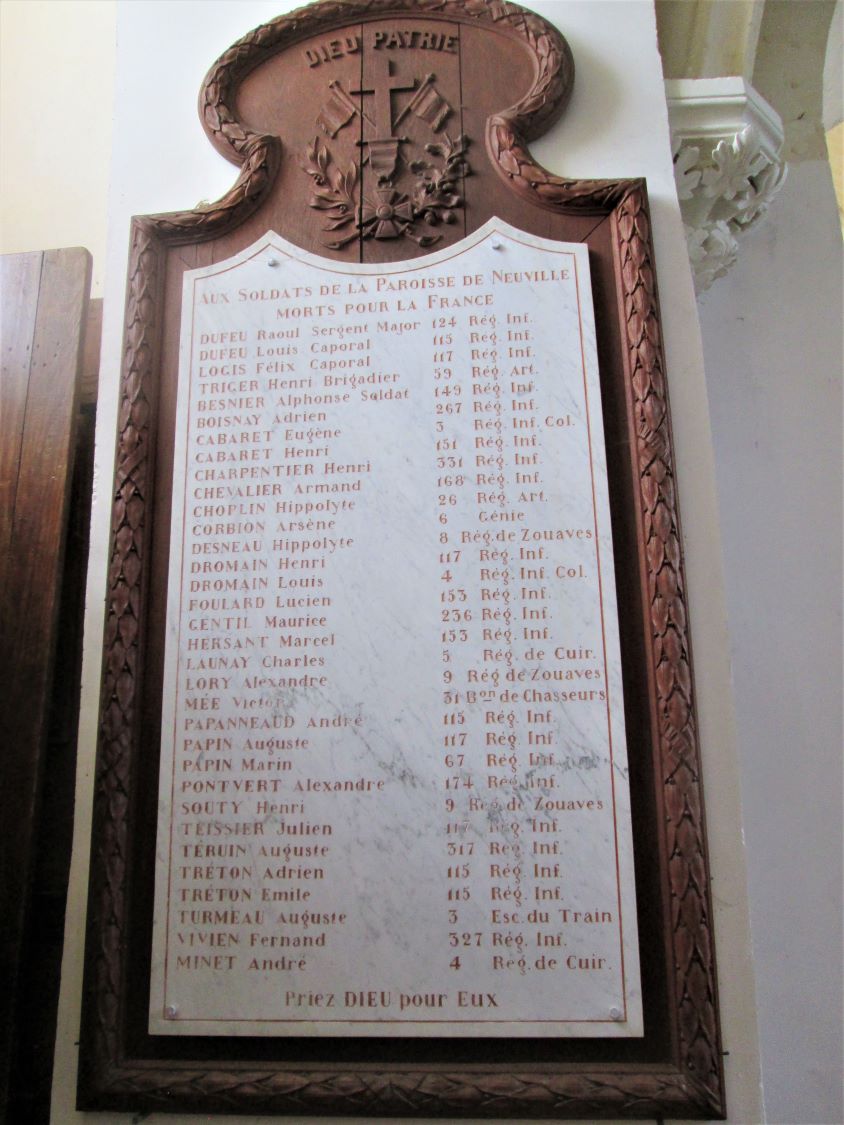 DIEU PATRIE
AUX SOLDATS DE LA PAROISSE DE NEUVILLE
MORTS POUR LA FRANCE
DUFEU Raoul Sergent Major 124 Rég. Inf.
DUFEU Louis Caporal 115 Rég. Inf.
LOGIS Félix Caporal 117 Rég. Inf.
TRIGER Henri Brigadier 59 Rég. Art.
BESNIER Alphonse Soldat 149 Rég. Inf.
BOISNAY Adrien 267 Rég. Inf.
CABARET Eugène 3 Rég. Inf. Col.
CABARET Henri 151 Rég. Inf.
CHARPENTIER Henri 331 Rég. Inf.
CHEVALIER Armand 168 Rég. Inf.
CHOPLIN Hippolyte 26 Rég. Art.
CORBION Arsène 6 Génie
DESNEAU Hippolyte 8 Rég. de Zouaves
DROMAIN Henri 117 Rég. Inf.
DROMAIN Louis 4 Rég. Inf. Col.
FOULARD Lucien 153 Rég. Inf.
GENTIL Maurice 236 Rég. Inf.
HERSANT Marcel 153 Rég. Inf.
LAUNAY Charles 5 Rég. de Cuir.
LORY Alexandre 9 Rég de Zouaves
MÉE Victor 31 Bon de Chasseurs
PAPANNEAUD André 115 Rég. Inf.
PAPIN Auguste 117 Rég. Inf.
PAPIN Marin 67 Rég. Inf.
PONTVERT Alexandre 174 Rég. Inf.
SOUTY Henri 9 Rég de Zouaves
TEISSIER Julien 117 Rég. Inf.
TÉRUIN Auguste 317 Rég. Inf.
TRÉTON Adrien 115 Rég. Inf.
TRÉTON Emile 115 Rég. Inf.
TURMEAU Auguste 3 Esc. du Train
VIVIEN Fernand 327 Rég. Inf.
MINET André 4 Rég. de Cuir.
Priez DIEU pour Eux